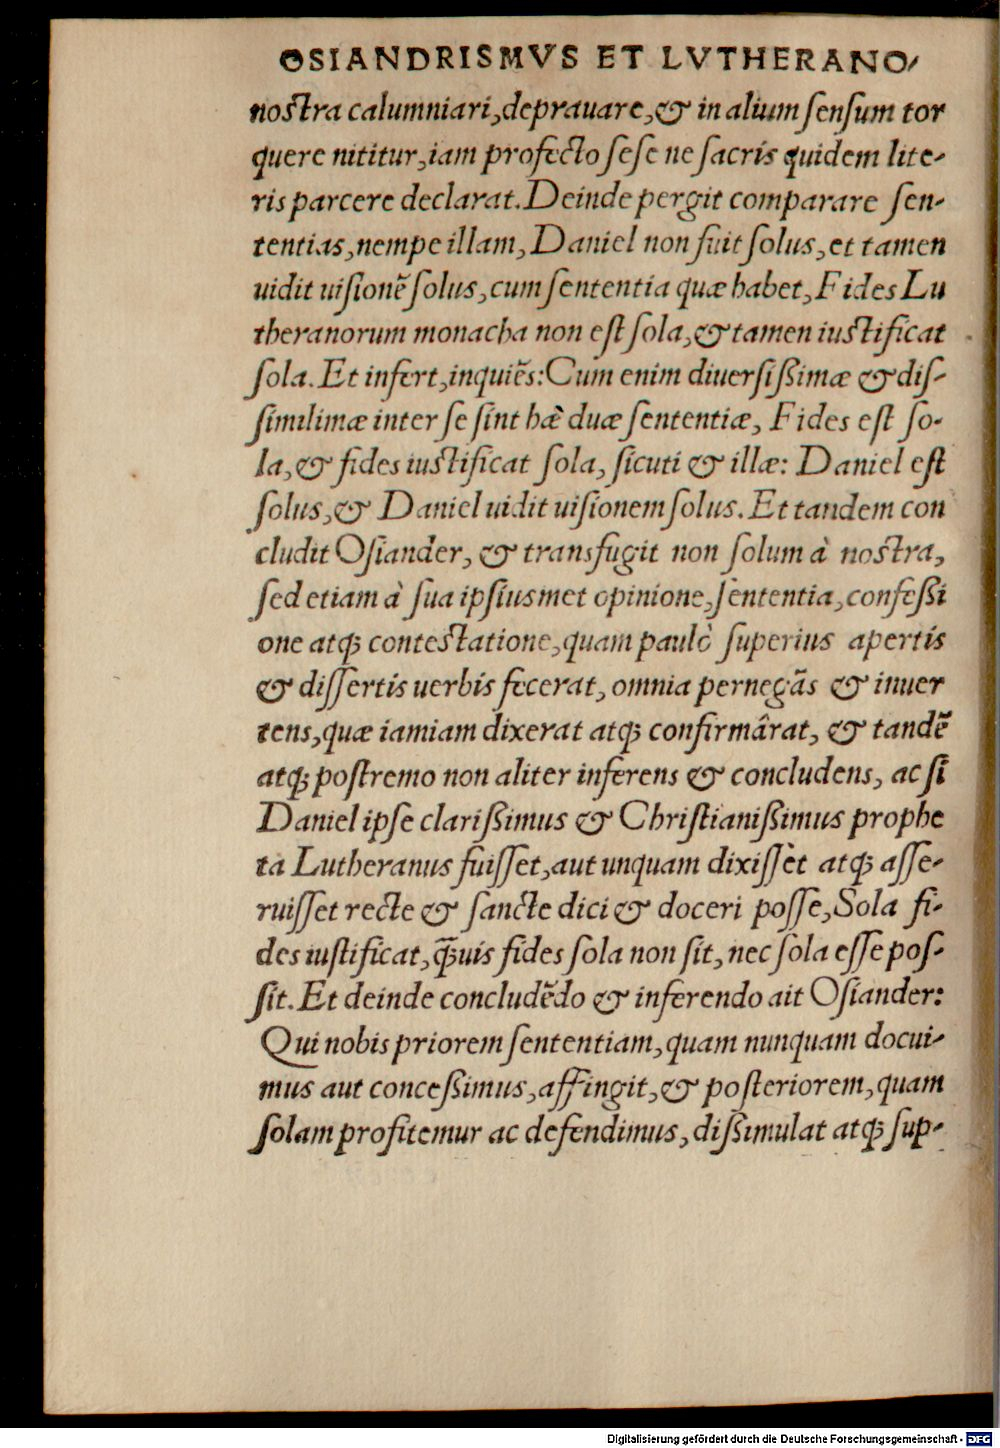 OSIANDRISMVS ET LVTHERANO-
nostra calumniari, deprauare, & in alium sensum tor
quere nititur, iam profecto sese ne sacris quidem lite-
ris parcere declarat. Deinde pergit comparare sen-
tentias, nempe illam, Daniel non fuit solus, et tamen
uidit uisionē solus, cum sententia quæ habet, Fides Lu
theranorum monacha non est sola, & tamen iustificat
sola. Et infert, inquiēs: Cum enim diuersißimæ & dis-
similimæ inter se sint hæ duæ sententiæ, Fides est so-
la, & fides iustificat sola, sicuti & illæ: Daniel est
solus, & Daniel uidit uisionem solus. Et tandem con
cludit Osiander, & transfugit non solum à nostra,
sed etiam à sua ipsiusmet opinione, sententia, confeßi
one atq; contestatione, quam paulò superius apertis
& dissertis uerbis fecerat, omnia pernegãs & inuer
tens, quæ iamiam dixerat atq; confirmârat, & tandē
atq; postremo non aliter inferens & concludens, ac si
Daniel ipse clarißimus & Christianißimus prophe
ta Lutheranus fuisset, aut unquam dixissèt atq; asse-
ruisset recte & sancte dici & doceri posse, Sola fi-
des iustificat, q̃uis fides sola non sit, nec sola esse pos-
sit. Et deinde concludēdo & inferendo ait Osiander:
Qui nobis priorem sententiam, quam nunquam docui-
mus aut conceßimus, affingit, & posteriorem, quam
solam profitemur ac defendimus, dißimulat atq; sup-
Digitalisierung gefördert durch die Deutsche Forschungsgemeinschaft - DFG